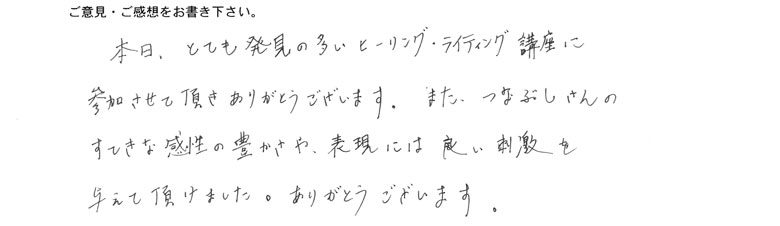 ご意見・ご感想をお書き下さい。
本日、とても発見の多いヒーリング・ライティング講座に
参加させて頂きありがとうございます。また、つなぶしさんの
すてきな感性の豊かさや、表現には良い刺激を
与えて頂けました。ありがとうございます。